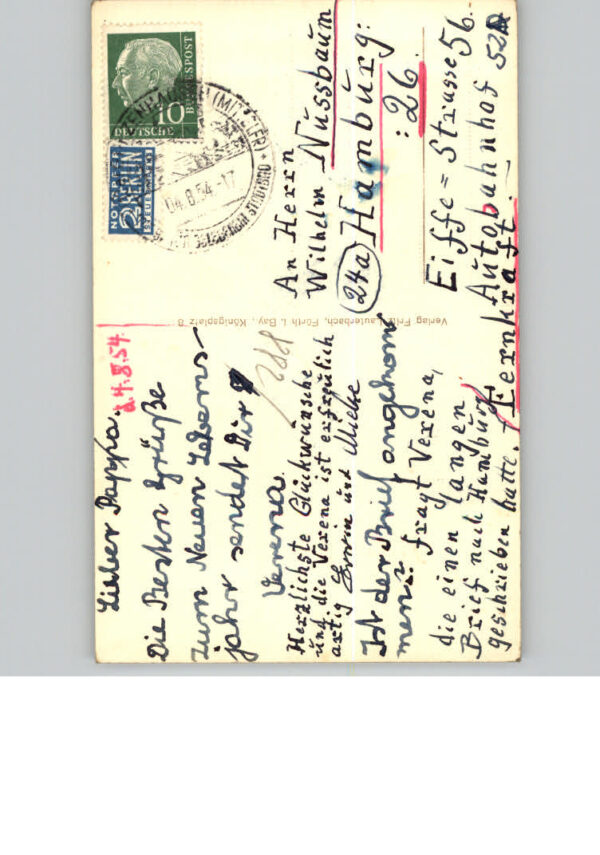 Lieber Pappa.
d. 4.8.54.
Die Besten Grüße
zum Neuen Lebens-
jahr sendet Dir
Verena.
Herzlichste Glückwünsche
und die Verena ist erfreulich
artig
und
Ist der Brief angekom
men: fragt Verena,
die einen langen
Brief nach Hamburg
geschrieben hatte.
Verlag Fritz Lauterbach, Fürth i. Bay., Königsplatz 8
10
DEUTSCHE
BUNDESPOST
NOTOPFER
2 BERLIN
STEUERMARKE
(MITTELFR)
04.8.54.-17
An Herrn
Wilhelm Nussbaum
(24a) Hamburg:
: 26.
Eiffe = Strasse 56.
Autobahnhof 52
Fernkraft